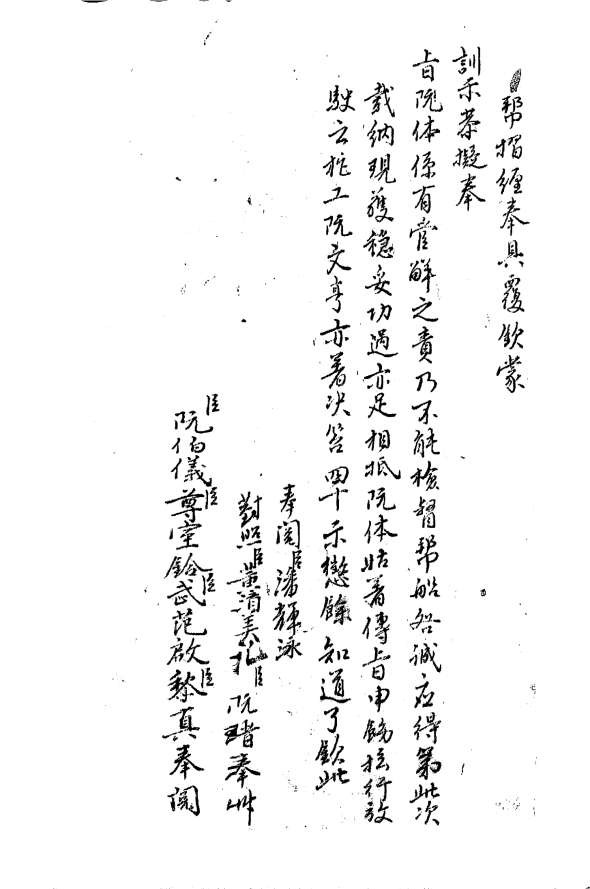 帮摺經奉具覆欽蒙
訓示恭擬奉
旨阮体係有管解之責乃不能檢督帮船咎誠应得第此次
載納現獲穩妥功過亦足相抵阮体姑著傳旨申飭括行放
駛之柁工阮文亨亦著决笞四十示懲餘知道了欽此
奉閱臣潘輝泳
對照臣黃濟美臣阮奉艸
臣阮伯儀臣尊室鉿臣武范啟臣黎真奉閱